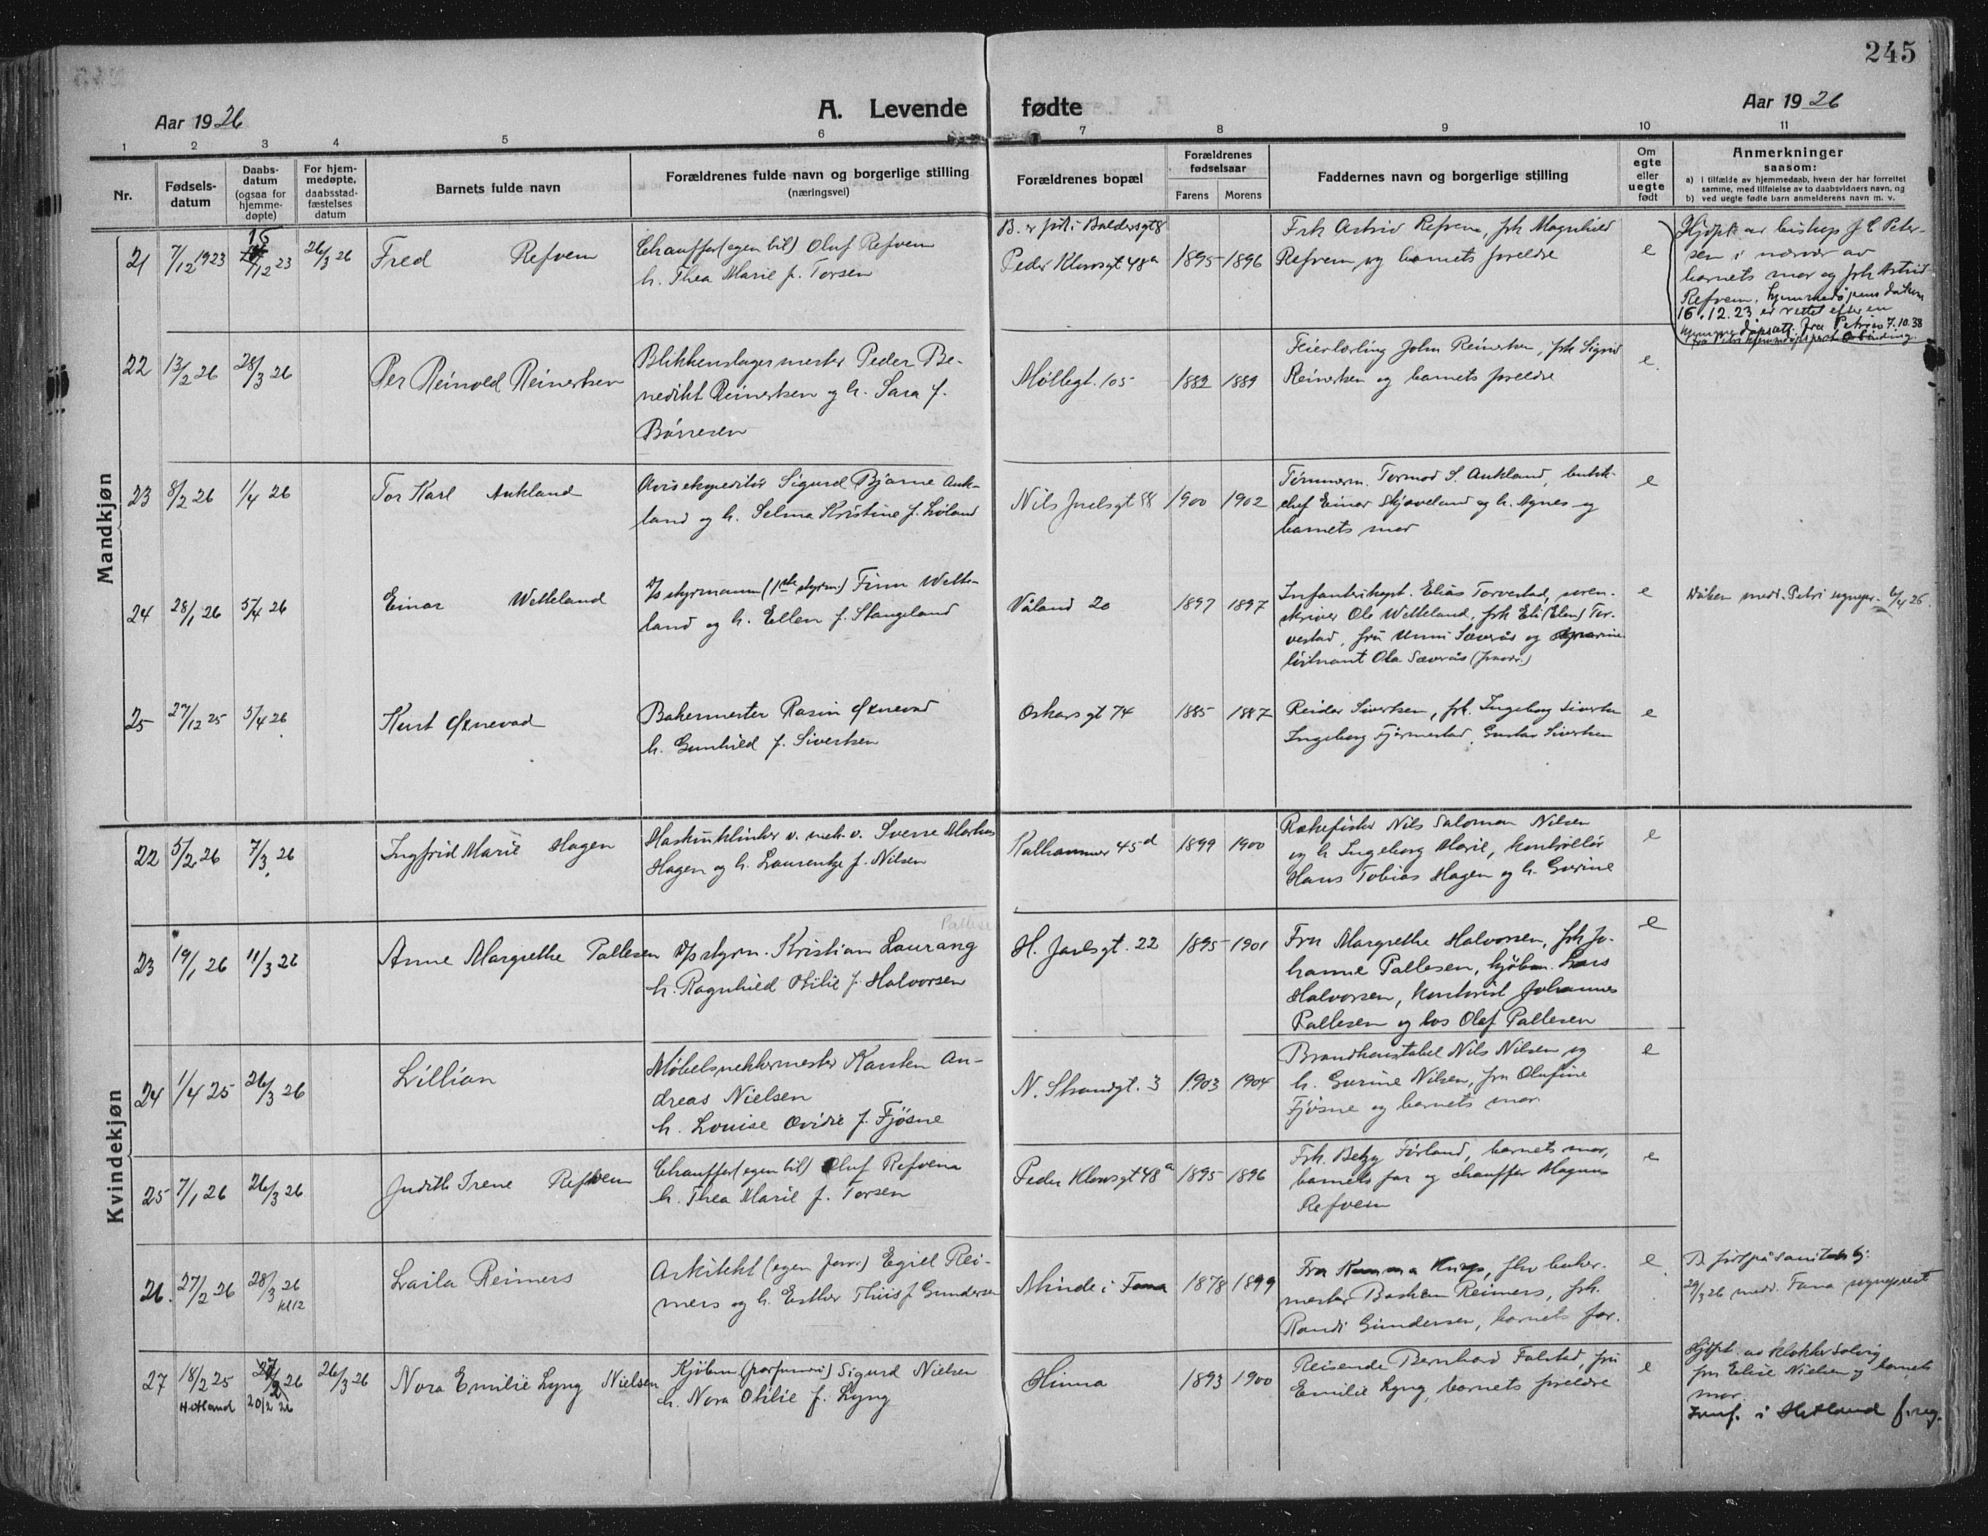 245
Aar 1926
A. Levende fødte
Aar 1926
1 2 3 4 5 6 7 8 9 10 11
Nr.
Fødsels-
datum
Daabs-
datum
(ogsaa for
hjemme-
døpte)
For hjem-
medøpte,
daabsstad-
fæstelses
datum
Barnets fulde navn
Forældrenes fulde navn og borgerlige stilling
(næringsvei)
Forældrenes bopæl
Forældrenes
fødselsaar
Farens Morens
Faddernes navn og borgerlige stilling
Om
egte
eller
uegte
født
Anmerkninger
saasom:
a) i tilfælde av hjemmedaab, hvem der har forrettet
samme, med tilføielse av to daabsvidners navn, og
b) ved uegte fødte barn anmelderens navn m. v.
Mandkjøn
21 7/12 1923 15/12 23 26/3 26
Fred Refvem
Chauffør (egen bil) Oluf Refvem
h. Thea Marie f. Torsen
B. er født i Baldersgt 8
Peder Klowsgt 48a
1895 1896
Frk Astrid Refvem, frk Magnhild
Refvem og barnets foreldre
e
Hjdpt av biskop J C Peter-
sen i nærvær av
barnets mor og frk Astrid
Refvem. Hjemmedåpens datum
15.12.23 er rettet efter en
dåpsatt. fra Petri 7.10.38
22 13/2 26 28/3 26
Per Reinold Reinertsen
Blikkenslagermester Peder Be-
nedikt Reinertsen og h. Sara f.
Børresen
Møllegt. 105
1882 1889
Feierlærling John Reinertsen, frk Sigrid
Reinertsen og barnets foreldre
e.
23 8/2 26 1/4 26
Tor Karl Aukland
Avisekspeditør Sigurd Bjarne Auk-
land og h. Selma Kristine f. Løland
Nils Juelsgt 58
1900 1902
Tømmerm. Tormod S. Aukland, butik-
chef Einar Skjæveland og h. Agnes og
barnets mor
e
24 28/1 26 5/4 26
Einar Wetteland
D/s styrmann (1ste styrm.) Finn Wette-
land og h. Ellen f. Stangeland
Våland 20
1897 1897
Infanterikapt. Elias Torvestad, soren-
skriver Ole Wetteland, frk Eli (Elen) Tor-
vestad, fru Unni Sæverås og marine
løitnant Ola Sæverås (fravær.)
e
Dåben medd. Petri sogneprest 6/4 26.
25 27/12 25 5/4 26
Kurt Øxnevad
Bakermester Rasin Øxnevad
h. Gunhild f. Sivertsen
Oskarsgt 74
1885 1887
Reidar Sivertsen, frk. Ingeborg Sivertsen
Ingeborg Fjermestad, Gustav Sivertsen
e
Kvindekjøn
22 5/2 26 7/3 26
Ingfrid Marie Hagen
Maskinklinker v. mek. v. Sverre Markus
Hagen og h. Laurentze f. Nilsen
Kalhammer 45d
1899 1900
Rækefisker Nils Salomon Nilsen
og h Ingeborg Marie, kontrollør
Hans Tobias Hagen og h. Gurine
e
Pallesen
23 19/1 26 11/3 26
Anne Margrethe Pallesen
D/s styrm. Kristian Laurang
h. Ragnhild Otilie f. Halvorsen
H. Jarlsgt. 22
1895 1901
Fru Margrethe Halvorsen, frk Jo-
hanne Pallesen, kjøbm. Lars
Halvorsen, kontorist Johannes
Pallesen og los Olaf Pallesen
e
24 1/4 25 26/3 26
Lillian
Møbelsnekkermester Karsten An-
dreas Nielsen
h. Louise Ovidie f. Fjøsne
N. Strandgt. 3
1903 1904
Brandkonstabel Nils Nilsen og
h. Gurine Nilsen, fru Olufine
Fjøsne og barnets mor
e
25 7/1 26 26/3 26
Judith Irene Refvem
Chauffør (egen bil) Oluf Refvem
h. Thea Marie f. Torsen
Peder Klowsgt 48a
1895 1896
Frk. Betzy Førland, barnets mor,
barnets far og chauffør Magnus
Refvem
e
26. 27/2 26 28/3 26
kl 12
Laila Reimers
Arkitekt (egen forr.) Egill Rei-
mers og h. Esther Thiis f Gundersen
Minde i Fana
1878 1899
Fru Kamma Krogs, fhv baker-
mester Bastian Reimers, frk.
Randi Gundersen, barnets far.
e
B. født på sanitets kj.
29/3 26 medd. Fana sogneprest
27 18/2 25 20/2 26 26/3 26
Hetland
Nora Emilie Lyng Nielsen
Kjøbm (parfumeri) Sigurd Nielsen
h. Nora Otilie f. Lyng
Hinna
1893 1900
Reisende Bernhard Falstad, fru
Emilie Lyng, barnets foreldre
e
Hjdpt. av klokker Solvig
fru Elise Nielsen og barnets
mor.
Innf. i Hetland f.reg.